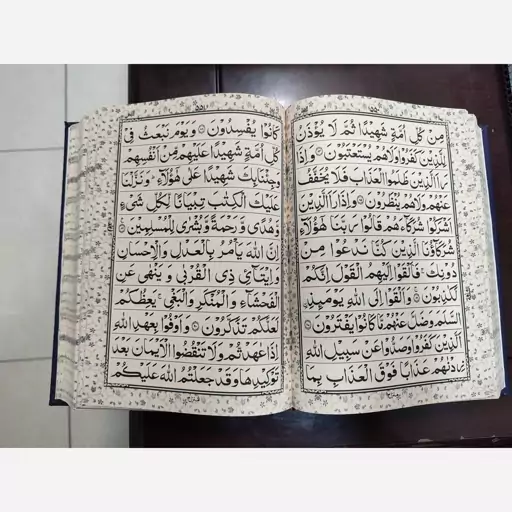 مِنْ كُلِّ اُمَّةٍ شَهِيْدًا ثُمَّ لَا يُؤْذَنُ
لِلَّذِيْنَ كَفَرُوْا وَلَا هُمْ يُسْتَعْتَبُوْنَ وَاِذَا
رَاَ الَّذِيْنَ ظَلَمُوا الْعَذَابَ فَلَا يُخَفَّفُ
عَنْهُمْ وَلَا هُمْ يُنْظَرُوْنَ وَاِذَا رَاَ الَّذِيْنَ
اَشْرَكُوْا شُرَكَآءَهُمْ قَالُوْا رَبَّنَا هٰٓؤُلَآءِ
شُرَكَآؤُنَا الَّذِيْنَ كُنَّا نَدْعُوْا مِنْ
دُوْنِكَ فَاَلْقَوْا اِلَيْهِمُ الْقَوْلَ اِنَّكُمْ
لَكٰذِبُوْنَ وَاَلْقَوْا اِلَى اللّٰهِ يَوْمَئِذِ
السَّلَمَ وَضَلَّ عَنْهُمْ مَّا كَانُوْا يَفْتَرُوْنَ
اَلَّذِيْنَ كَفَرُوْا وَصَدُّوْا عَنْ سَبِيْلِ اللّٰهِ
زِدْنٰهُمْ عَذَابًا فَوْقَ الْعَذَابِ بِمَا
كَانُوْا يُفْسِدُوْنَ وَيَوْمَ نَبْعَثُ فِيْ
كُلِّ اُمَّةٍ شَهِيْدًا عَلَيْهِمْ مِّنْ اَنْفُسِهِمْ
وَجِئْنَا بِكَ شَهِيْدًا عَلٰى هٰٓؤُلَآءِ وَنَزَّلْنَا
عَلَيْكَ الْكِتٰبَ تِبْيَانًا لِّكُلِّ شَيْءٍ
وَّهُدًى وَّرَحْمَةً وَّبُشْرٰى لِلْمُسْلِمِيْنَ
اِنَّ اللّٰهَ يَاْمُرُ بِالْعَدْلِ وَالْاِحْسَانِ
وَاِيْتَآئِ ذِي الْقُرْبٰى وَيَنْهٰى عَنِ
الْفَحْشَآءِ وَالْمُنْكَرِ وَالْبَغْيِ يَعِظُكُمْ
لَعَلَّكُمْ تَذَكَّرُوْنَ وَاَوْفُوْا بِعَهْدِ اللّٰهِ
اِذَا عٰهَدْتُّمْ وَلَا تَنْقُضُوا الْاَيْمَانَ بَعْدَ
تَوْكِيْدِهَا وَقَدْ جَعَلْتُمُ اللّٰهَ عَلَيْكُمْ